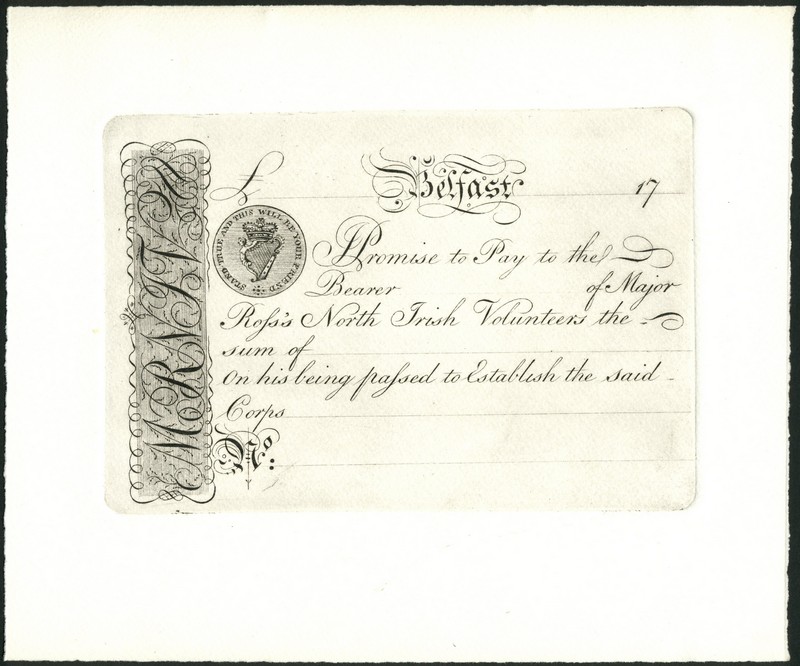 £ Belfast 17
STAND TRUE AND THIS WILL BE YOUR FRIEND
I Promise to Pay to the
Bearer of Major
Roſs's North Irish Volunteers the
sum of
On his being paſsed to Establish the said
Corps
No:
MRNIV